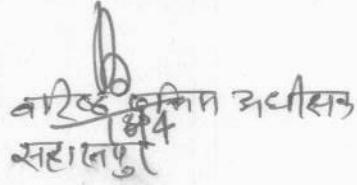 वरिष्ठ पुलिस अधीक्षक
सहारनपुर